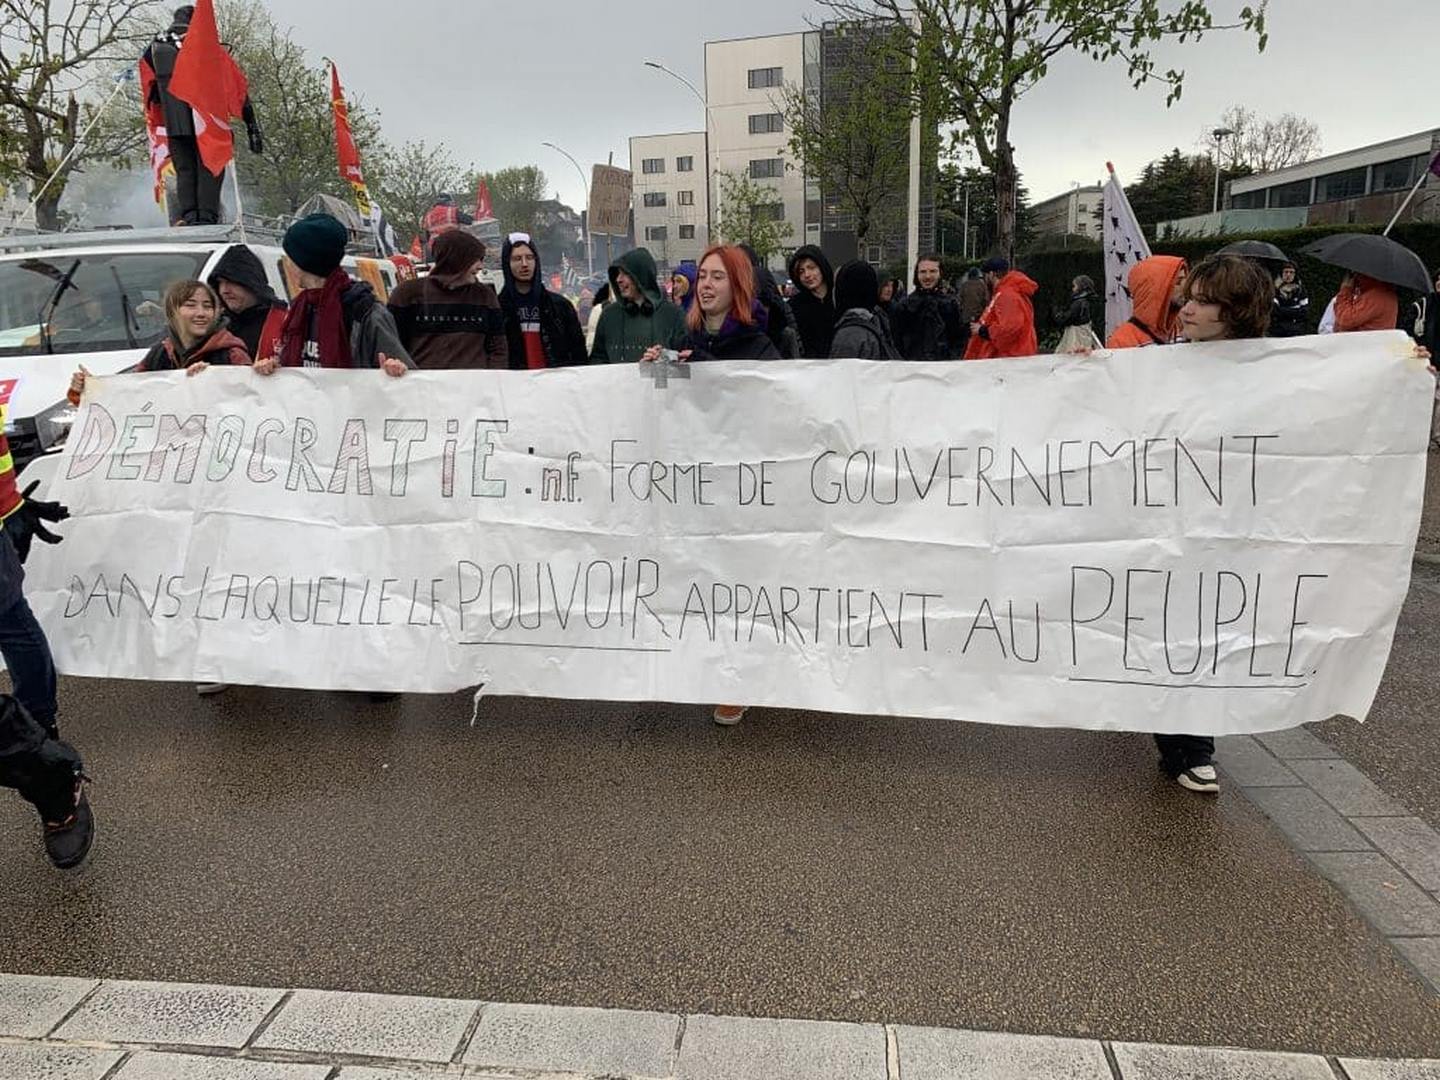 DÉMOCRATiE : n.f. FORME DE GOUVERNEMENT
DANS LAQUELLE LE POUVOiR APPARTiENT AU PEUPLE.
ORIGINALS